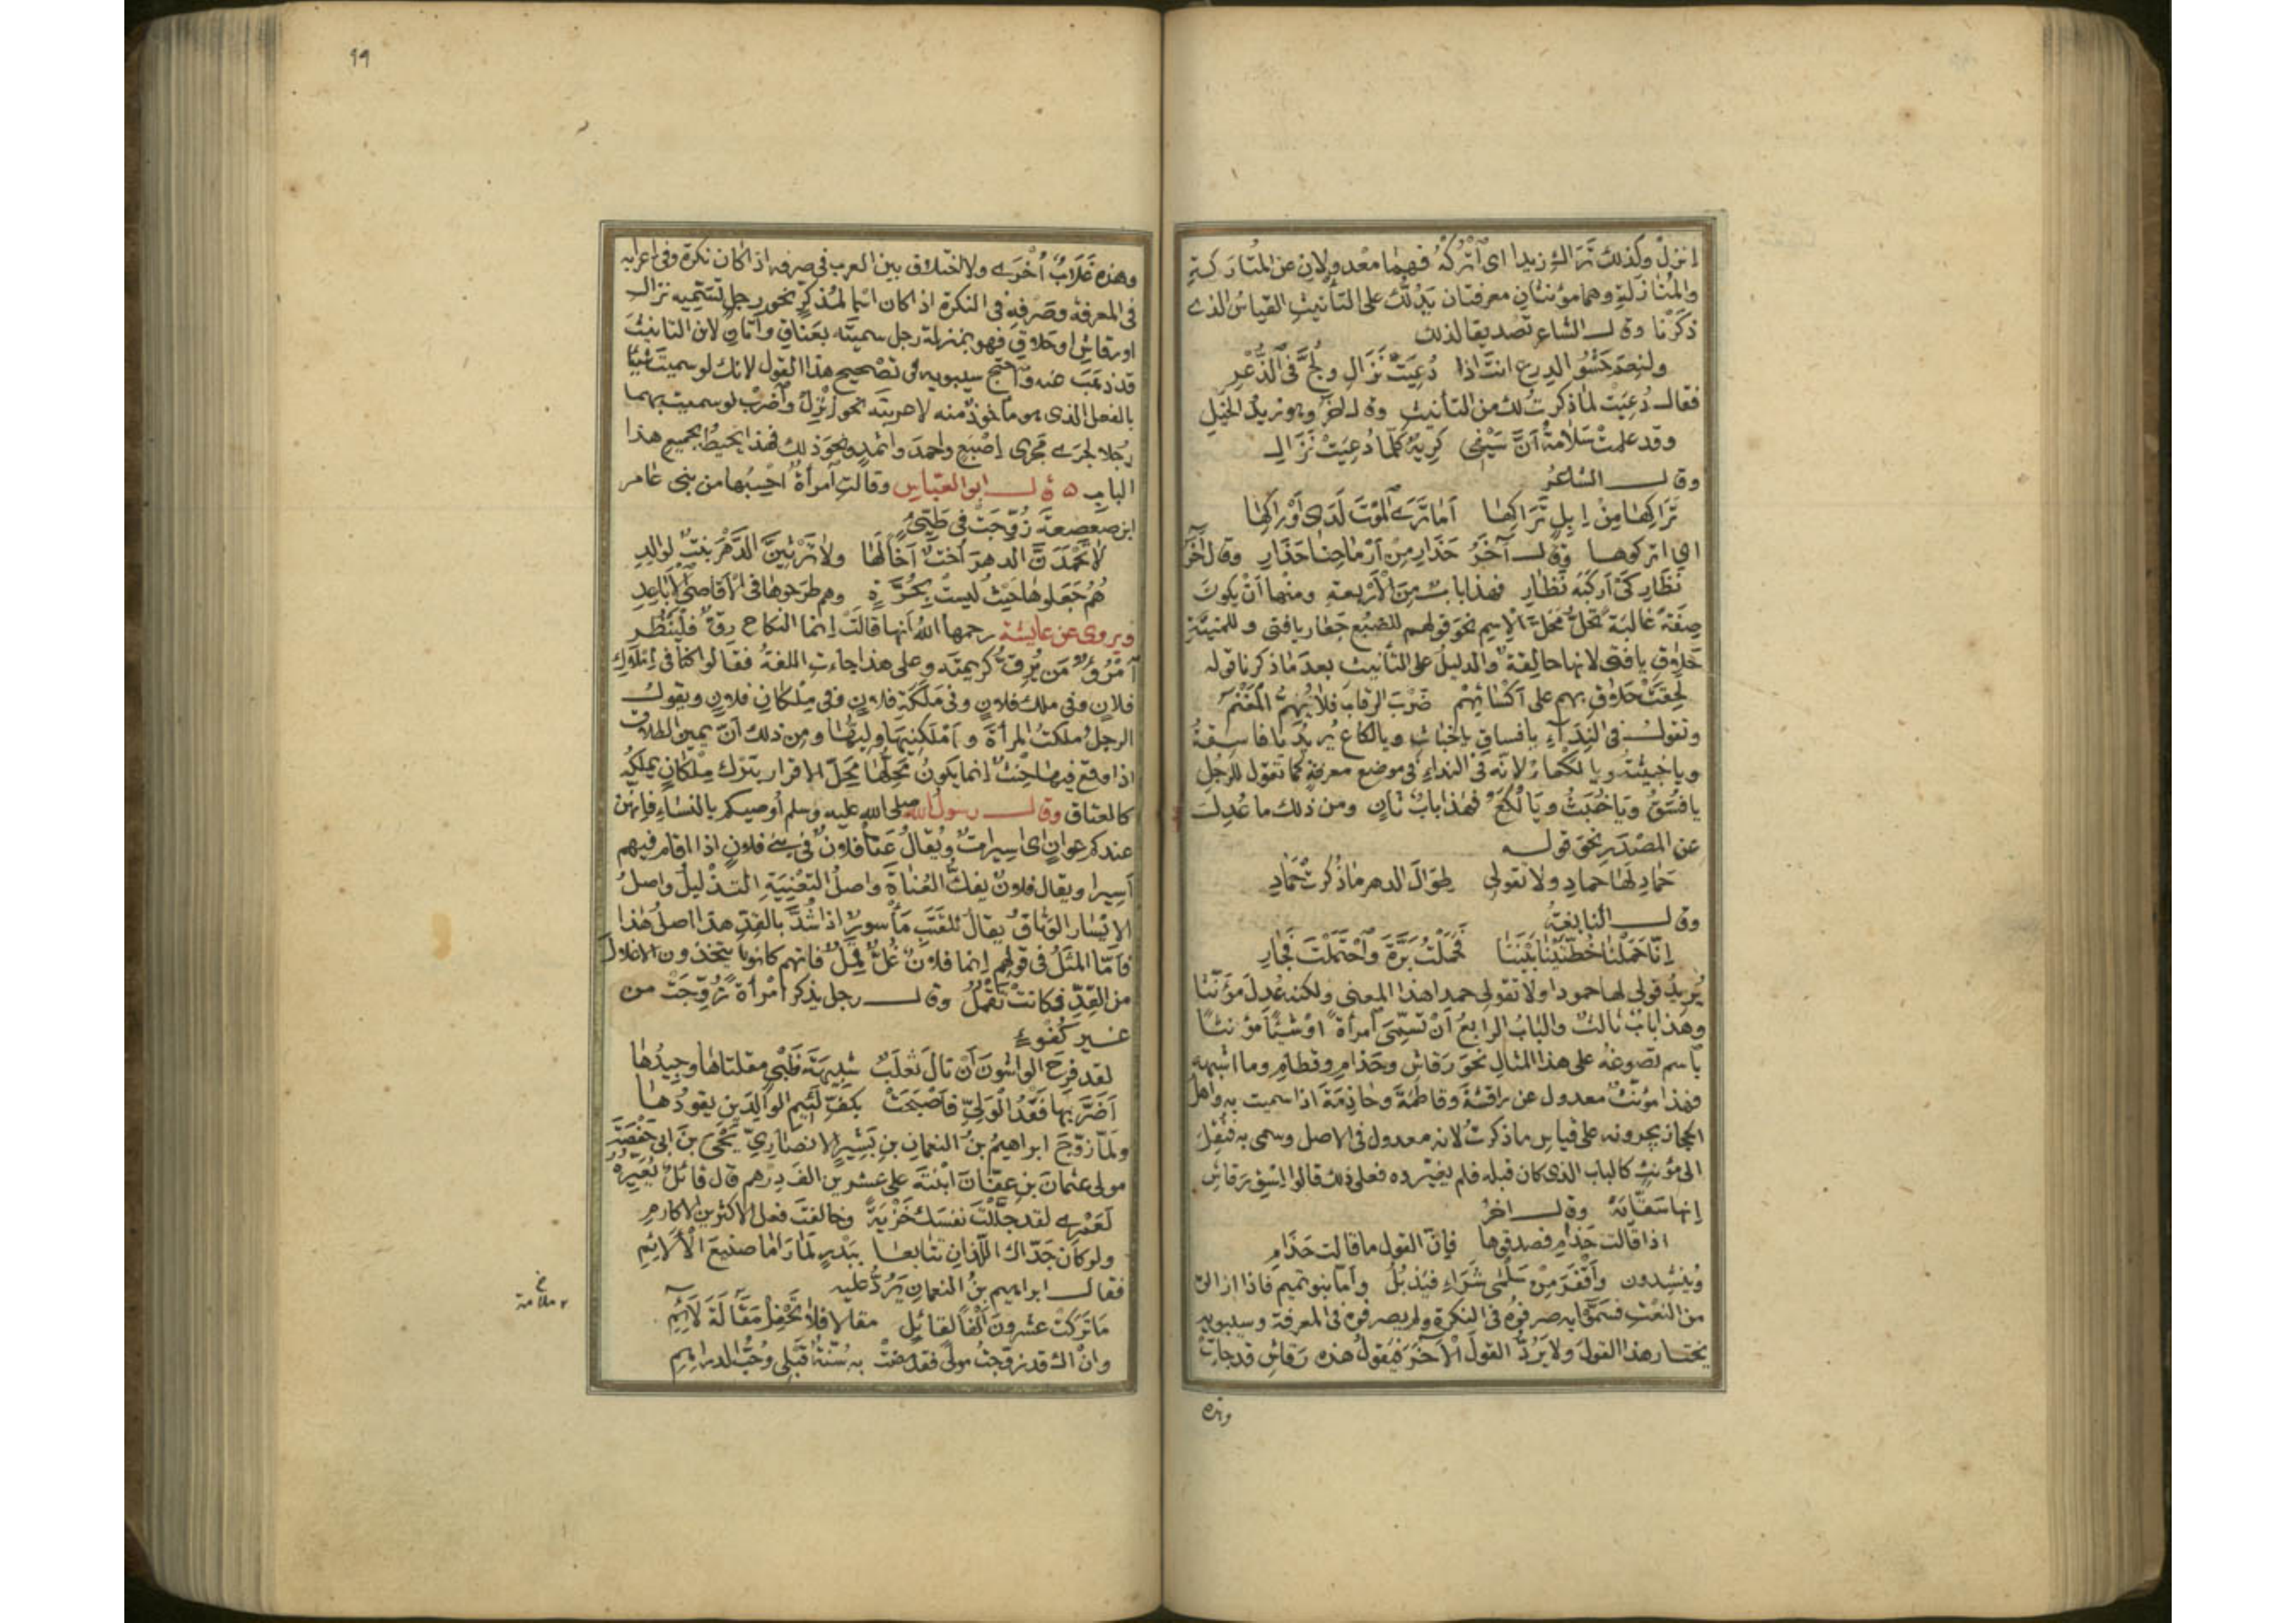 انزل وكذلك تراك زيدا اى اتركه فهما معدولان عن المتاركة
والمنازلة وهما مؤنثان معرفتان يدلك على التأنيث القياس الذى
ذكرنا وقال الشاعر تصديقا لذلك
ولنعم حشو الدرع انت اذا دُعِيَتْ نَزَالِ ولُجَّ فى الذُّعْرِ
فقال دُعِيَتْ لما ذكرت لك من التأنيث وقال آخر وهو زيد الخيل
وقد علمت سَلَامَةُ أَنَّ سَيْفِى كَرِيهٌ كلما دُعِيَتْ نَزَالِ
وقال الشاعر
تَرَاكِهَا مِنْ إِبِلٍ تَرَاكِهَا أَمَا تَرَى الْمَوْتَ لَدَى أَوْرَاكِهَا
اى اتركوها وقال آخر حَذَارِ مِنْ أَرْمَاحِنَا حَذَارِ وقال آخر
نَظَارِ كَىْ أَرْكَبَهُ نَظَارِ فهذا باب من الأربعة ومنها أن يكون
صِفَةً غالبة تَحُلُّ مَحَلَّ الاسم نحو قولهم للضبع جَعَارِ يا فتى وللمنية
حَلَاقِ يا فتى لانها حالقة والدليل على التأنيث بعد ما ذكرنا قوله
لَحِقَتْ حَلَاقِ بهم على أَكْسَائِهِمْ ضَرْبَ الرقاب فلا يُهِمُّ الْمَغْنَمُ
وتقول فى النداء يا فساق يا خباث ويا لكاع يريد يا فاسقة
ويا خبيثة ويا لكعاء لانه فى النداء فى موضع معرفة كما تقول للرجل
يا فُسَقُ ويا خُبَثُ ويا لُكَعُ فهذا باب ثان ومن ذلك ما عُدِلَ
عن المصدر نحو قوله
جَمَادِ لَهَا جَمَادِ ولا تقولى طِوَالَ الدهر ما ذُكِرَتْ حَمَادِ
وقال النابغة
إِنَّا حَمَلْنَا خُطَّتَيْنَا بَيْنَنَا فَحَمَلْتُ بَرَّةَ وَاحْتَمَلْتَ فَجَارِ
يُرِيدُ قولى لها جمودا ولا تقولى حمدا هذا المعنى ولكنه عُدِلَ مؤنثا
وهذا باب ثالث والباب الرابع أن تسمى امرأة او شيئا مؤنثا
باسم تصوغه على هذا المثال نحو رَقَاشِ وحَذَامِ وقَطَامِ وما اشبهه
فهذا مؤنث معدول عن راقشة وفاطمة وحاذمة اذا سميت به واهل
الحجاز يجرونه على قياس ما ذكرت لانه معدول فى الاصل وسمى به فنقل
الى مؤنث كالباب الذى كان قبله فلم يغيروه فعلى ذلك قالوا اسق رقاش
إنها سقاية وقال آخر
اذا قالت حَذَامِ فصدقوها فإن القول ما قالت حَذَامِ
وينشدون وأَقْفَرَ مِنْ سَلْمَى شَرَاءِ فيذبل وأما بنو تميم فاذا ازالوه
من النعت فسموا به صرفوه فى النكرة ولم يصرفوه فى المعرفة وسيبويه
يختار هذا القول ولا يَرُدُّ القول الآخر فيقول هذه رقاش قد جاءت
وهذه
٩٩
وهذه غَلَابُ أُخْرَى ولا اختلاف بين العرب فى صرفه اذا كان نكرة وفى اعرابه
فى المعرفة وصرفه فى النكرة اذا كان اسما لمذكر نحو رجل تسميه نزال
او رقاش او حلاق فهو بمنزلة رجل سميته بعناق وأتان لان التأنيث
قد ذهب عنه واحتج سيبويه فى تصحيح هذا القول لانك لو سميت شيئا
بالفعل الذى هو مأخوذ منه لاعربته نحو انزل واضرب لو سميت بهما
رجلا لجرى مجرى إصبع واحمد واثمد ونحو ذلك فهذا يحيط بجميع هذا
الباب ٥ قال ابو العباس وقالت امرأة احسبها من بنى عامر
ابن صعصعة زُوِّجَتْ فى طَيِّئ
لا تَحْمَدَنَّ الدهر أُخْتٌ أَخًا لَهَا ولا تَرْثِيَنَّ الدَّهْرَ بِنْتٌ لوالد
هُمُ جَعَلُوهَا حَيْثُ لَيْسَتْ بِحُرَّةٍ وهم طرحوها فى الأقاصى الأباعد
ويروى عن عايشة رحمها الله انها قالت إنما النكاح رِقٌّ فلينظر
امرؤ من يُرِقُّ كريمته وعلى هذا جاءت اللغة فقالوا كنا فى املاك
فلان وفى ملك فلان وفى مَلَكَةِ فلان وفى مِلْكَانِ فلان ويقول
الرجل ملكت المرأة وأملكنيها وليها ومن ذلك أن يمين الطلاق
اذا وقع فيها حنث انما يكون محلها محل الاقرار بترك ملكان يملكه
كالعتاق وقال رسول الله صلى الله عليه وسلم أوصيكم بالنساء فانهن
عندكم عوان اى اسيرات ويقال عنا فلان فى بنى فلان اذا اقام فيهم
أسيرا ويقال فلان يفك العُناة واصل التعنية التذليل واصل
الاسار الوثاق يقال للقتب مأسور اذا شُدَّ بالقد هذا اصل هذا
فأما المثل فى قولهم إنما فلان غُلٌّ قَمِلٌ فانهم كانوا يتخذون الاغلال
من القِدِّ فكانت تَقْمَلُ وقال رجل يذكر امرأة زُوِّجَتْ من
غير كُفْوءٍ
لقد فرح الواشون أن نال ثعلب شَبِيهَةَ ظَبْىٍ مقلتاها وجيدها
أَضَرَّ بها فَقْدُ الْوَلِيِّ فأصبحت بكف لئيم الوالدين يقودها
ولما زوج ابراهيم بن النعمان بن بشير الانصارى يحيى بن ابى حفصة
مولى عثمان بن عفان ابنته على عشرين الف درهم قال قائل يُعَيِّرُهُ
لَعَمْرِى لقد جَلَّلْتَ نفسك خَزْيَةً وخالفت فعل الاكثرين الأكارم
ولو كان جَدَّاكَ اللذان تتابعا ببدر لَمَا رَامَا صنيع الألائم
فقال ابراهيم بن النعمان يَرُدُّ عليه
مَا تَرَكَتْ عشرون أَلْفًا لقائل مقالا فلا تَحْفِلْ مَقَالَةَ لَائِمِ
وان اك قد زوجت مولى فقد مضت به سُنَّةٌ قبلى وحُبُّ الدراهم
خ
ملامة